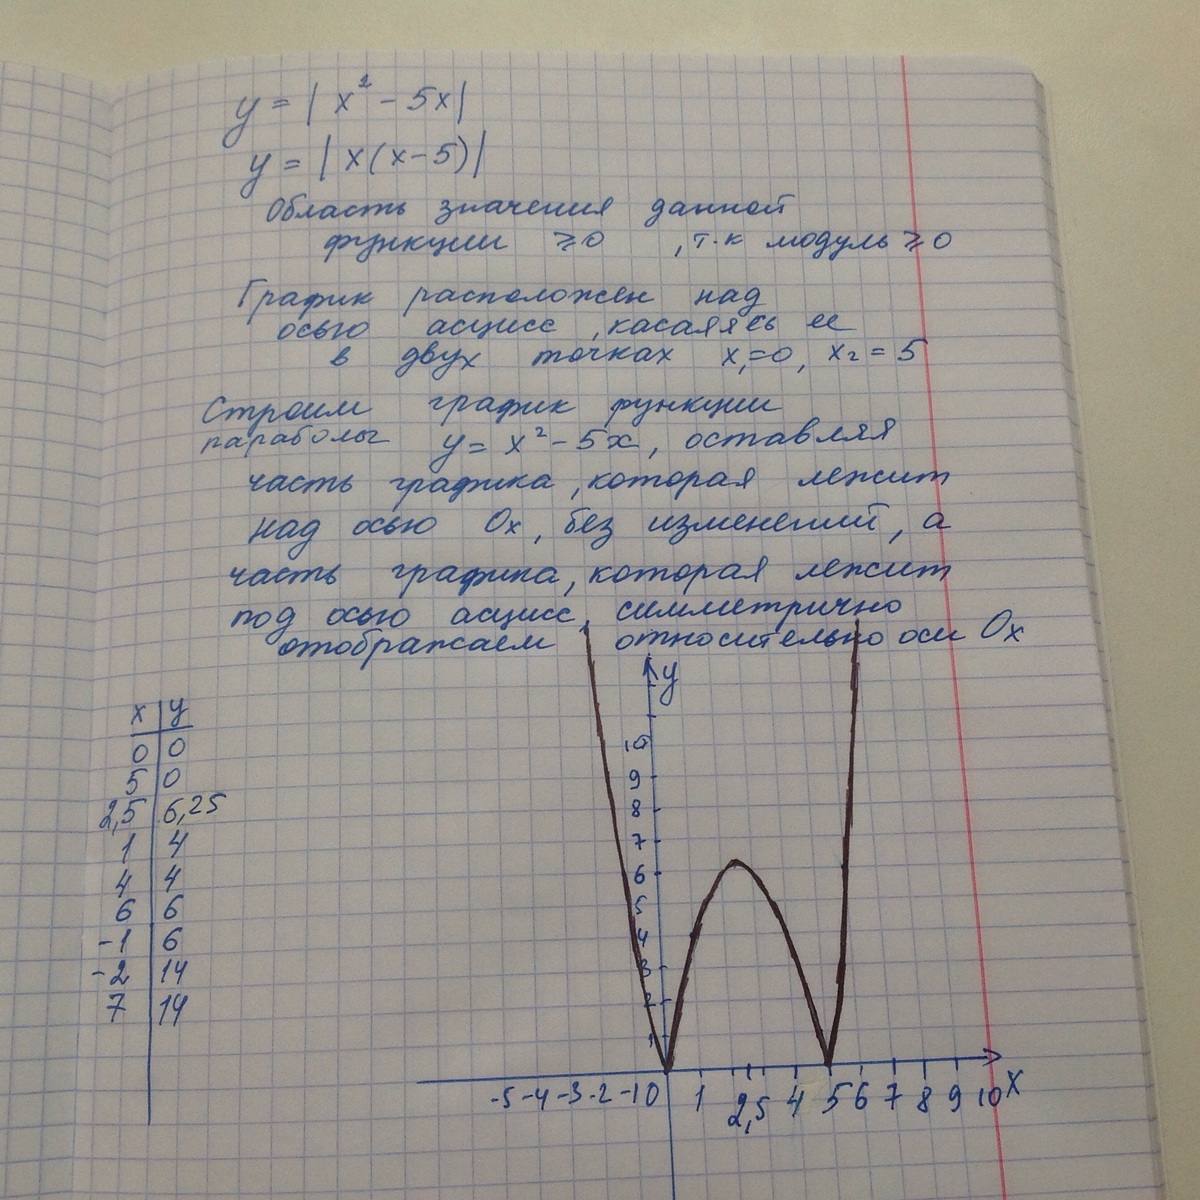 y = | x² - 5x|
y = | x(x-5)|
Область значения данной
функции ⩾0 , т.к модуль ⩾ 0
График расположен над
осью асцисс, касаяясь ее
в двух точках x₁=0, x₂ = 5
Строим график функции
параболы y = x² - 5x, оставляя
часть графика, которая лежит
над осью Ox, без изменений, а
часть графика, которая лежит
под осью асцисс, симметрично
отображаем относительно оси Ox
x y
0 0
5 0
2,5 6,25
1 4
4 4
6 6
-1 6
-2 14
7 14
y
10
9
8
7
6
5
4
3
2
1
-5 -4 -3 -2 -1 0 1 2,5 4 5 6 7 8 9 10 X